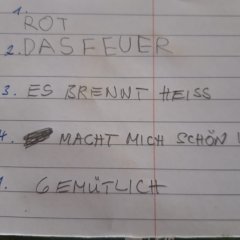 1.
ROT
2. DAS FEUER
3. ES BRENNT HEISS
4. MACHT MICH SCHÖN
1. GEMÜTLICH